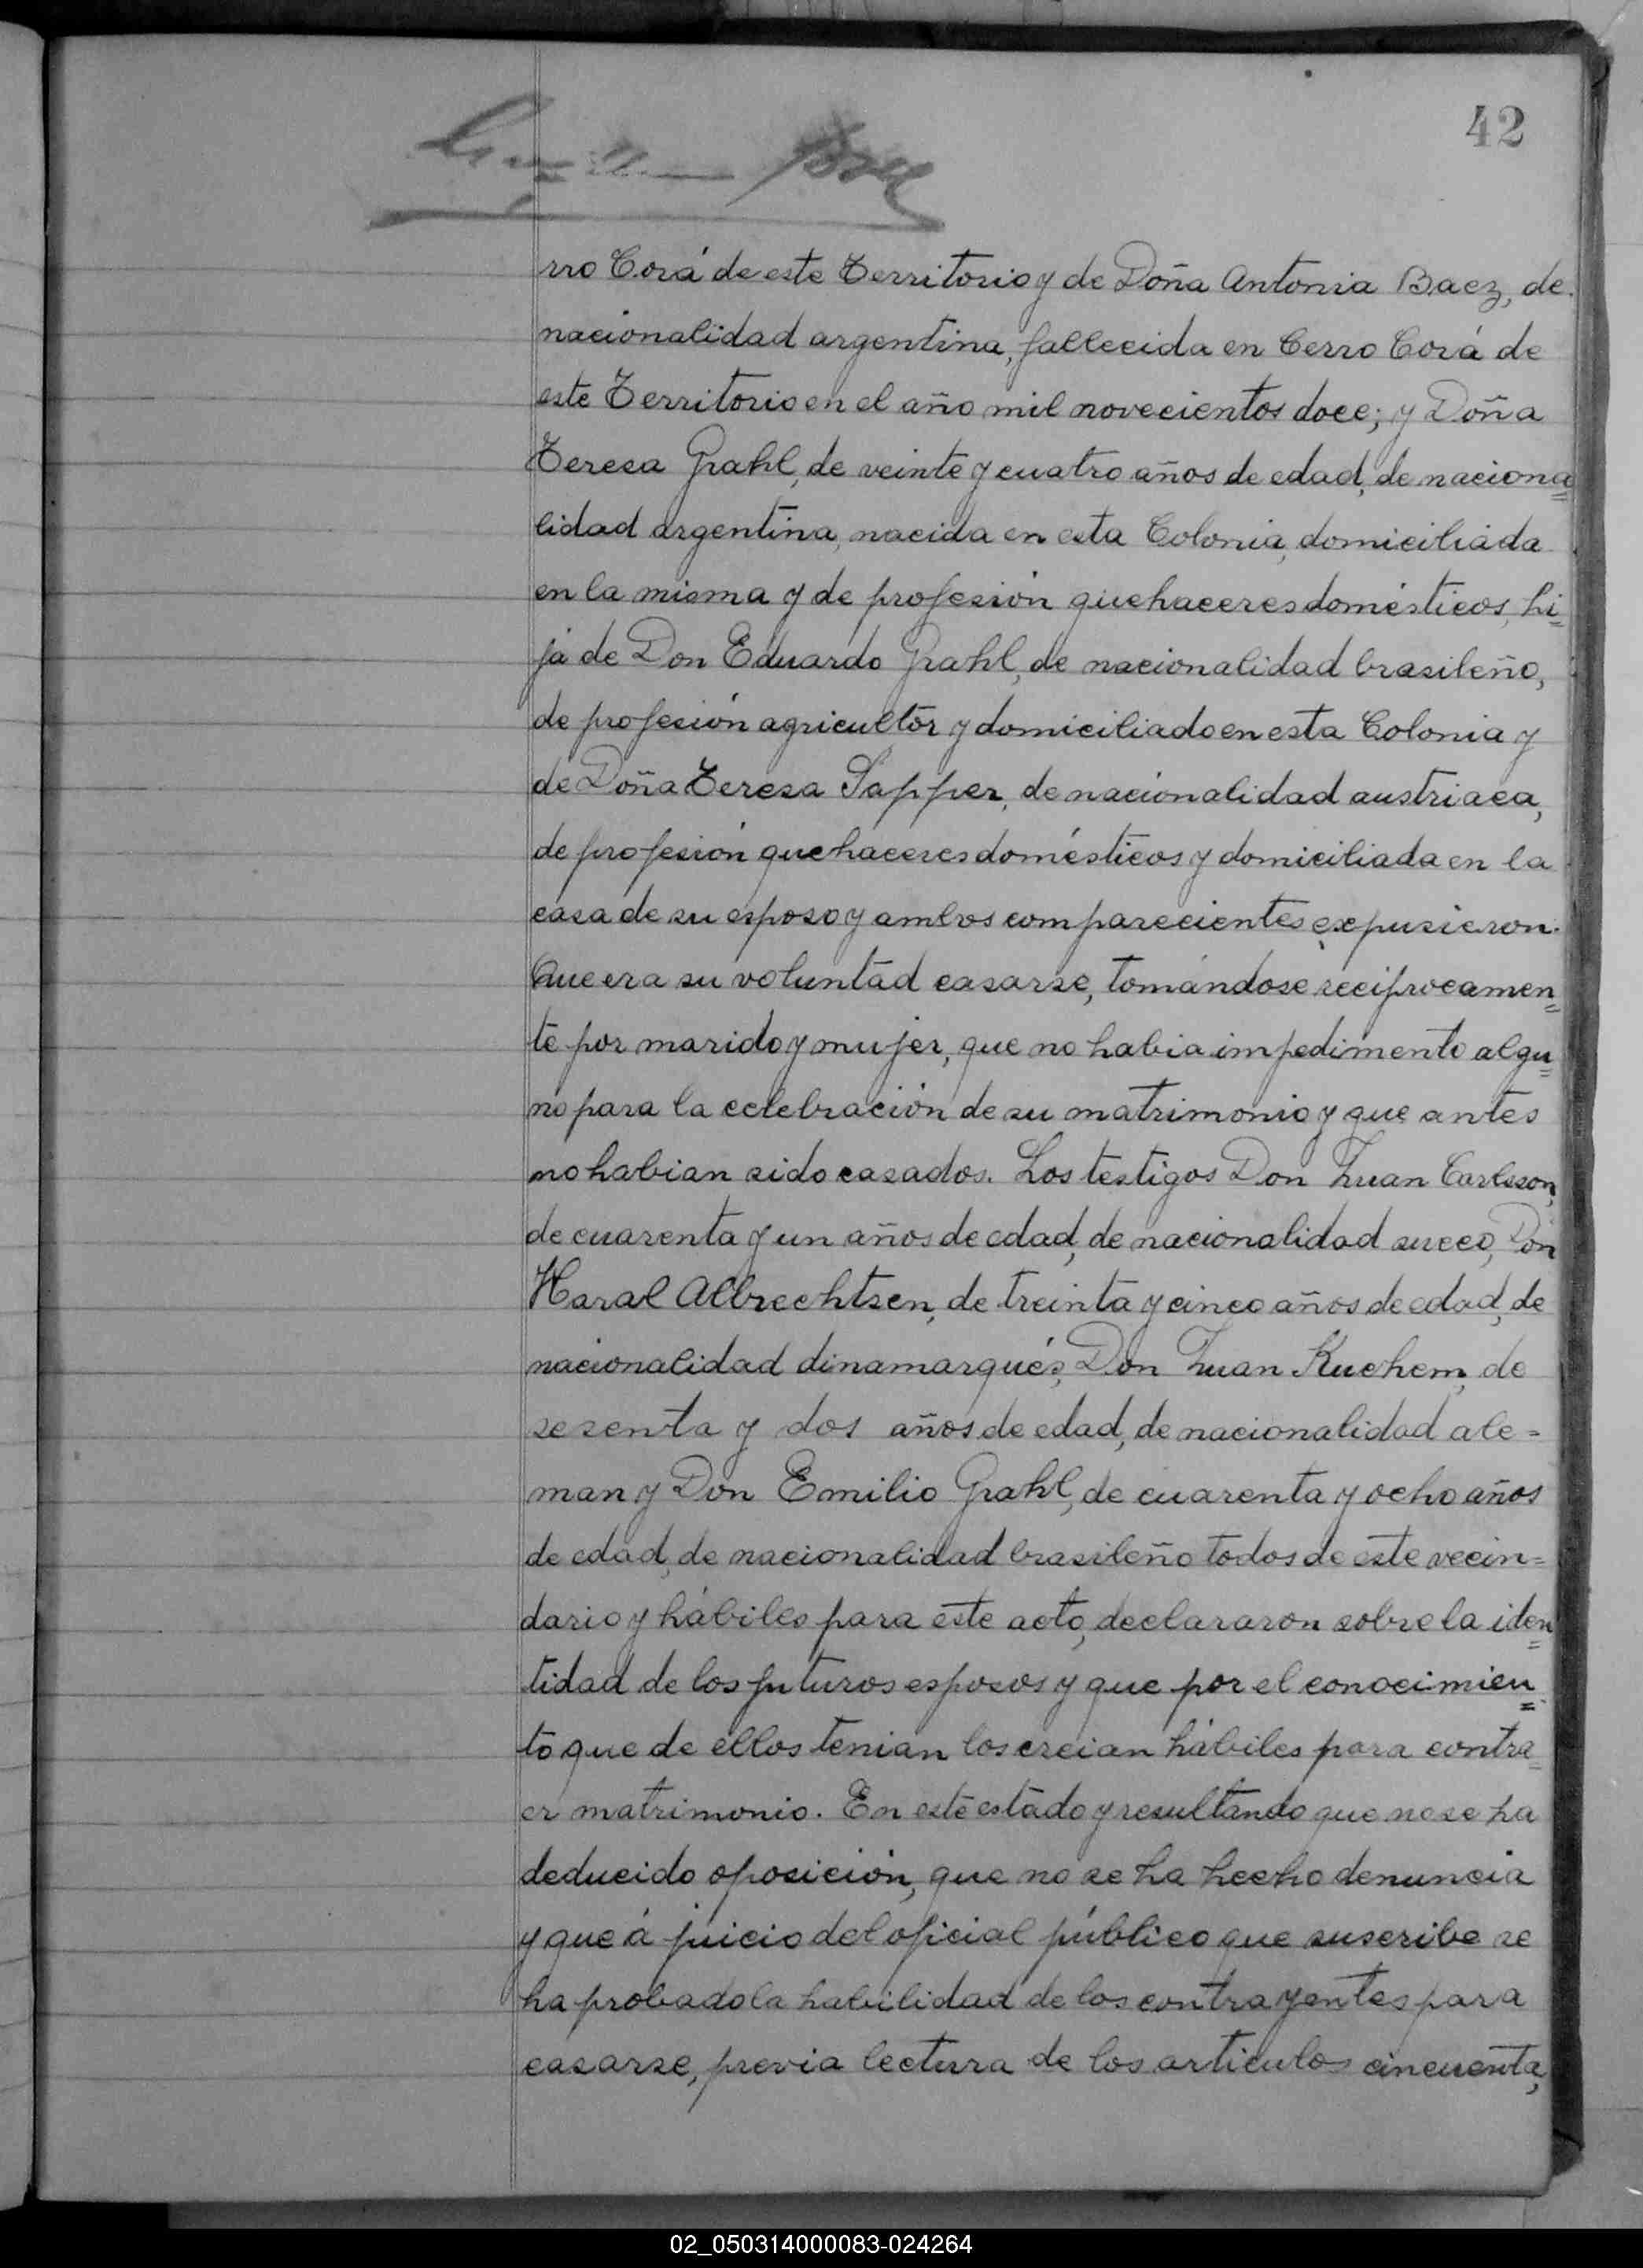 42
rro Corá de este Territorio y de Doña Antonia Baez, de
nacionalidad argentina, fallecida en Cerro Corá de
este Territorio en el año mil novecientos doce; y Doña
Teresa Grahl, de veinte y cuatro años de edad, de naciona=
lidad argentina, nacida en esta Colonia, domiciliada
en la misma y de profesión quehaceres domésticos, hi=
ja de Don Eduardo Grahl, de nacionalidad brasileño,
de profesión agricultor y domiciliado en esta Colonia y
de Doña Teresa Sapper, de nacionalidad austriaca,
de profesión quehaceres domésticos y domiciliada en la
casa de su esposo y ambos comparecientes expusieron:
Que era su voluntad casarse, tomándose reciprocamen=
te por marido y mujer, que no habia impedimento algu=
no para la celebración de su matrimonio y que antes
no habian sido casados. Los testigos Don Juan Carlsson,
de cuarenta y un años de edad, de nacionalidad sueco, Don
Haral Albrechtsen, de treinta y cinco años de edad, de
nacionalidad dinamarqués, Don Juan Kuchem, de
sesenta y dos años de edad, de nacionalidad ale=
man y Don Emilio Grahl, de cuarenta y ocho años
de edad, de nacionalidad brasileño todos de este vecin=
dario y hábiles para este acto, declararon sobre la iden=
tidad de los futuros esposos y que por el conocimien=
to que de ellos tenian los creian hábiles para contra=
er matrimonio. En este estado y resultando que no se ha
deducido oposición, que no se ha hecho denuncia
y que á juicio del oficial público que suscribe se
ha probado la habilidad de los contrayentes para
casarse, previa lectura de los articulos cincuenta,
02_050314000083-024264